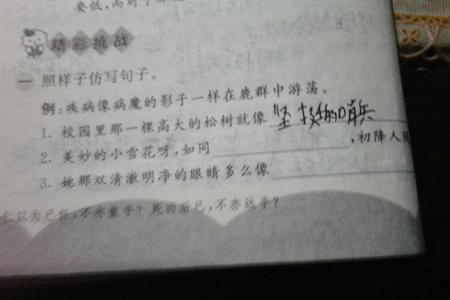 精彩挑战
一 照样子仿写句子。
例:疾病像病魔的影子一样在鹿群中游荡。
1. 校园里那一棵高大的松树就像 坚挺的哨兵
2. 美妙的小雪花呀,如同 ,初降人
3. 她那双清澈明净的眼睛多么像
以为己任,不亦重乎?死而后已,不亦远乎?